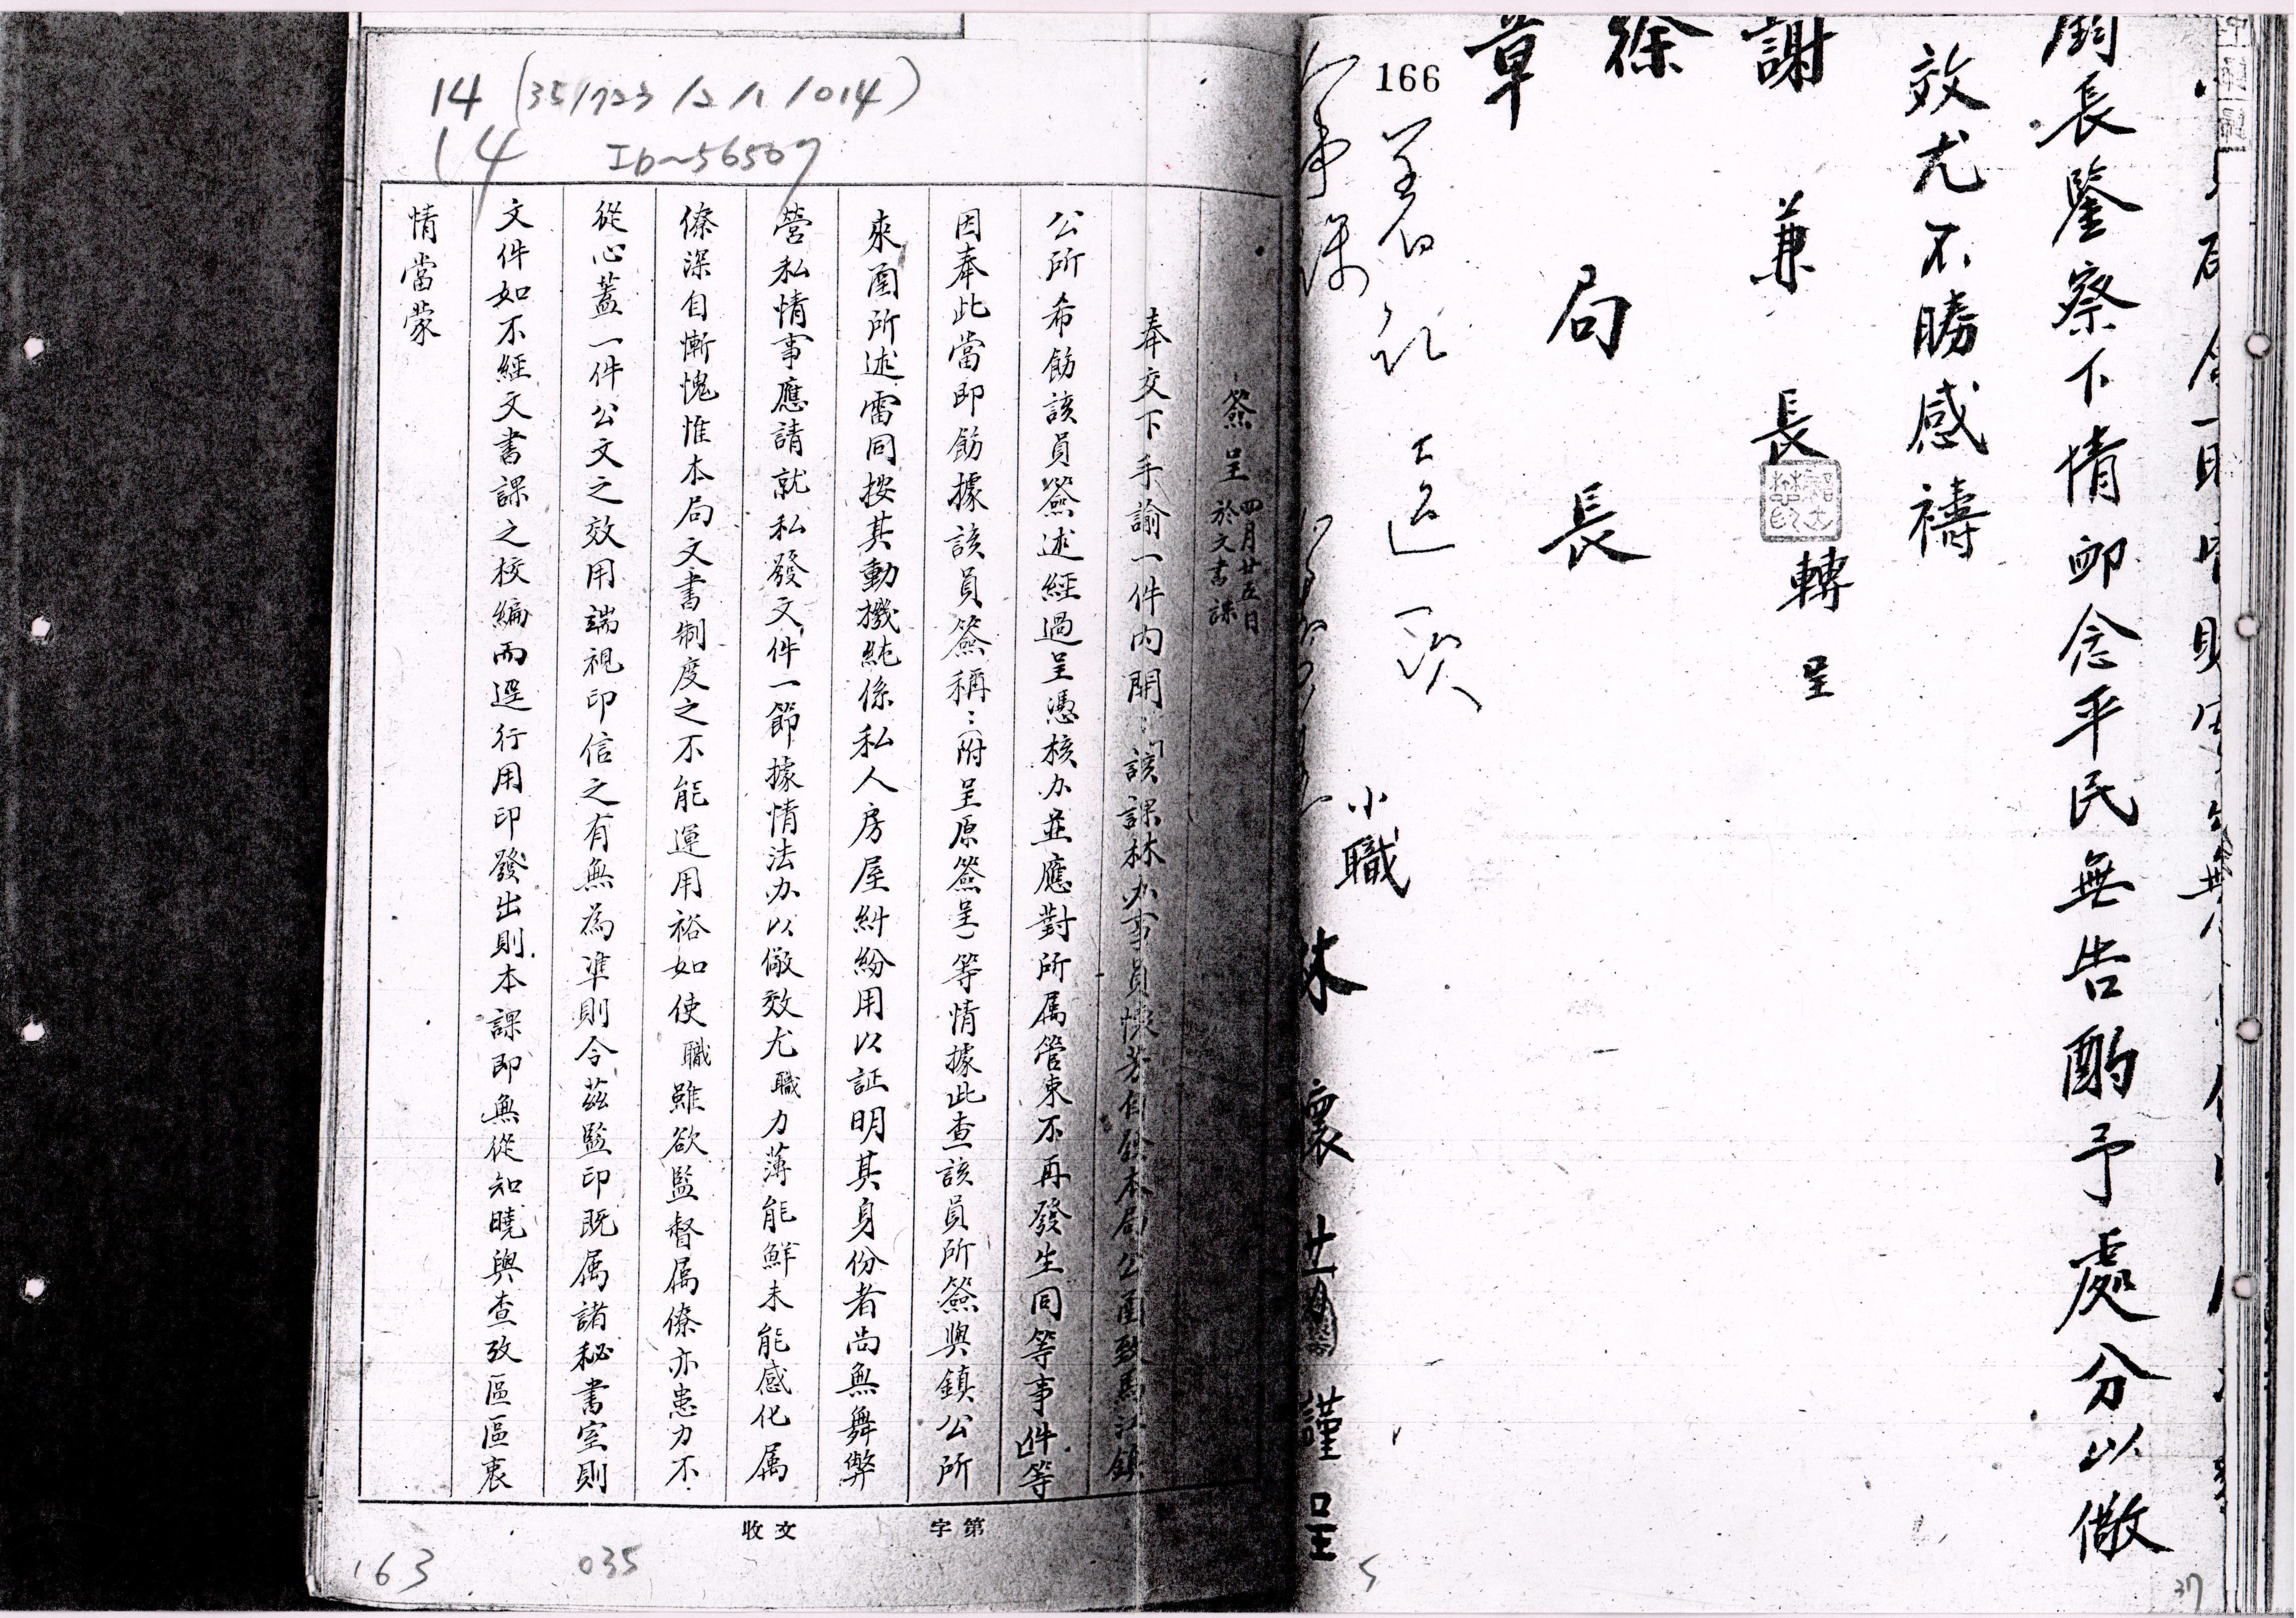 鈞長鑒察下情卹念平民無告酌予處分以儆
效尤不勝感禱
謝兼長轉呈
徐局長
章
166
著記大過一次
小職林懷
謹呈
37
14 (35/723/2/1/014)
14 ID~56507
簽呈 四月廿五日
於文書課
奉交下手諭一件內開：「該課林办事員懷芳自發本局公函致馬江鎮
公所希飭該員簽述經過呈憑核办並應對所属管束不再發生同等事件」等
因奉此當即飭據該員簽稱：(附呈原簽呈)等情據此查該員所簽與鎮公所
來函所述雷同按其動機純係私人房屋糾紛用以証明其身份者尚無舞弊
營私情事應請就私發文件一節據情法办以儆效尤職力薄能鮮未能感化属
僚深自慚愧惟本局文書制度之不能運用裕如使職雖欲監督属僚亦患力不
從心蓋一件公文之效用端視印信之有無為準則今茲監印既属諸秘書室則
文件如不經文書課之校編而逕行用印發出則本課即無從知曉與查攷區區衷
情當蒙
第 字
收文
163
035